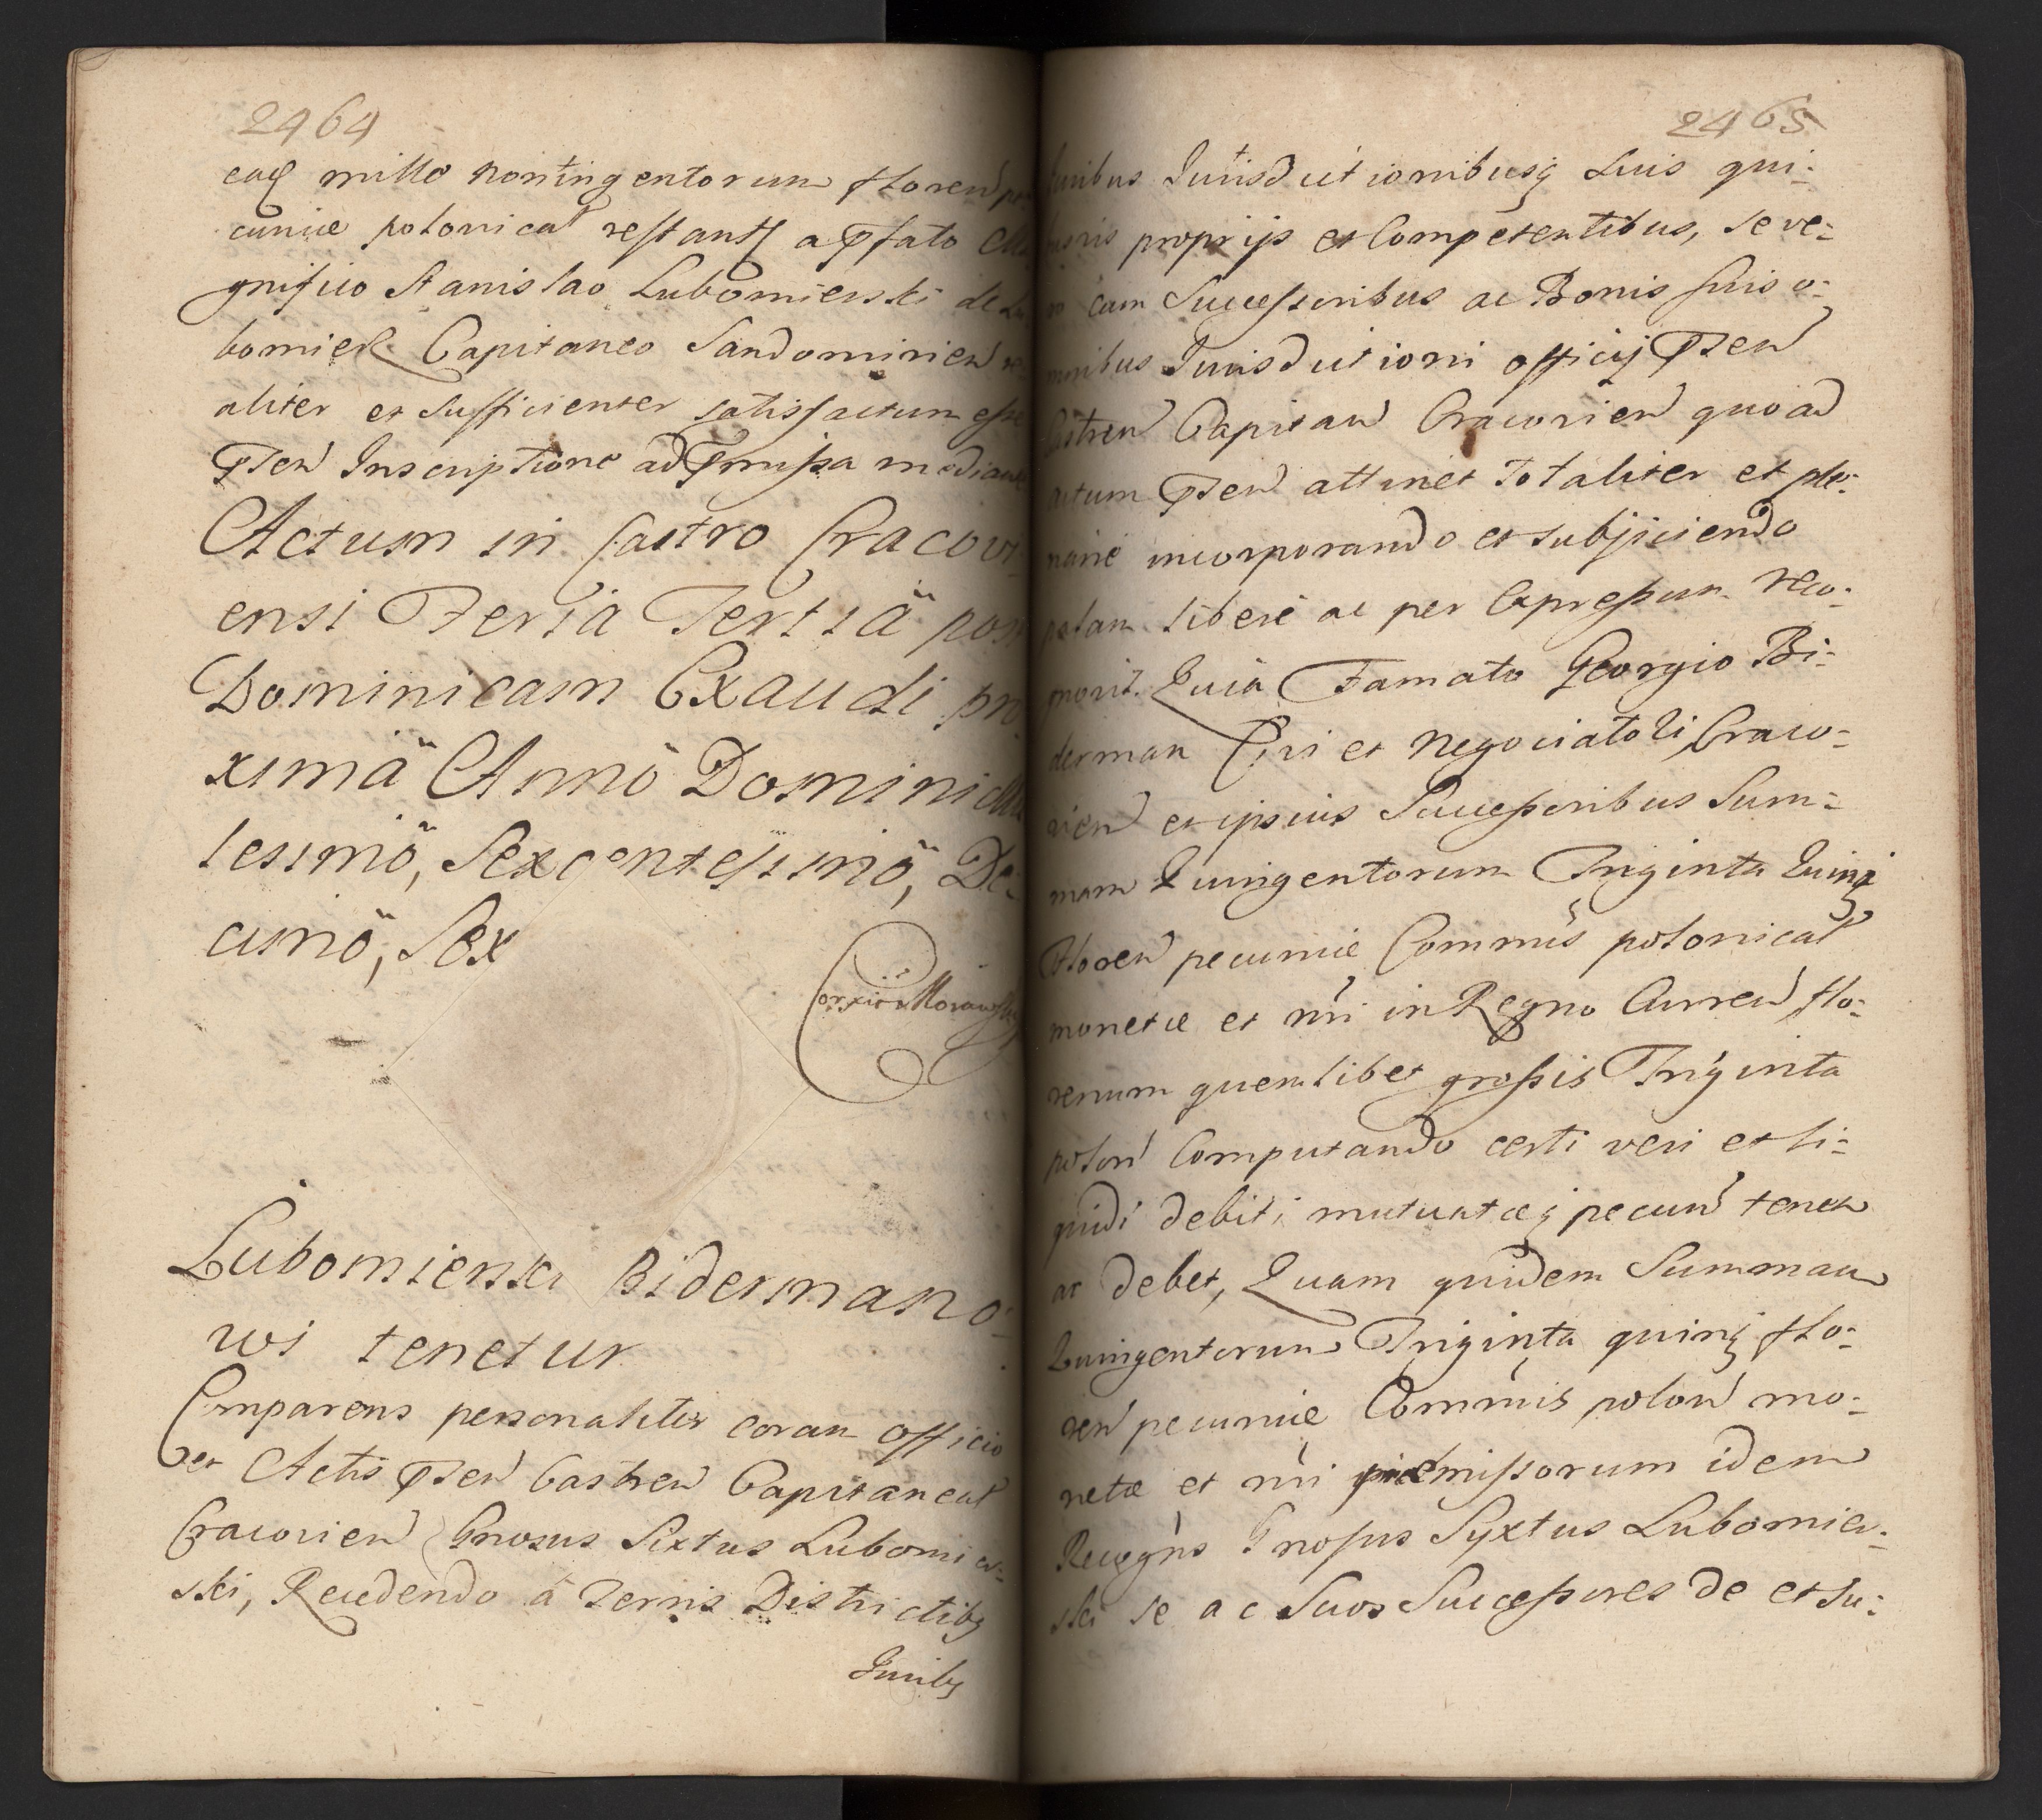 2464
eaq̃ mille noningentorum floren pe-
cuniæ polonical restants a p̃fato Ma
gnifico Stanislao Lubomierski de Lu-
bomierz Capitaneo Sandomirien re-
aliter et sufficienter satisfactum esse
p̃sen Inscriptione ad p̃missa mediante
Actum in Castro Cracovi-
ensi Feria Tertiâ post
Dominicam Exaudi pro-
ximâ Annô Domini Mil
lesimô, Sexcentesimô, De-
cimô, Sex
Lubomierski Bidermano-
wi tenetur
Comparens personaliter coram officio
et Actis p̃sen Castren Capitaneal
Cracovien Gnosus Sixtus Lubomier-
ski, Recedendo a Terris Districtibq
Juribq
2465
Juribus Jurisdictionibusq suis qui-
busvis proprijs et Competentibus, se ve-
ro cum Successoribus ac Bonis suis o-
mnibus Jurisdictioni officij p̃sen
Castren Capitan Cracovien quoad
actum p̃sen attinet totaliter et ple-
nariè incorporando et subijciendo
palam liberè ac per Expressum reco-
gnovit. Quia Famato Georgio Bi-
derman Civi et Negociatori Craco-
vien et ipsius Successoribus Sum-
mam Quingentorum Triginta Quinq
Floren pecuniæ Commūs polonical
monetæ et nri in Regno Curren flo-
renum quemlibet grossis Triginta
polon Computando certi veri et li-
quidi debiti mutuatæq pecun tenet
ac debet, Quam quidem Summam
Quingentorum Triginta quinq flo-
ren pecuniæ Commūis polon mo-
netæ et nri præmissorum idem
Recogns Gnosus Syxtus Lubomier-
ski se ac Suos Successores de et su-